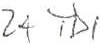 24 TDI